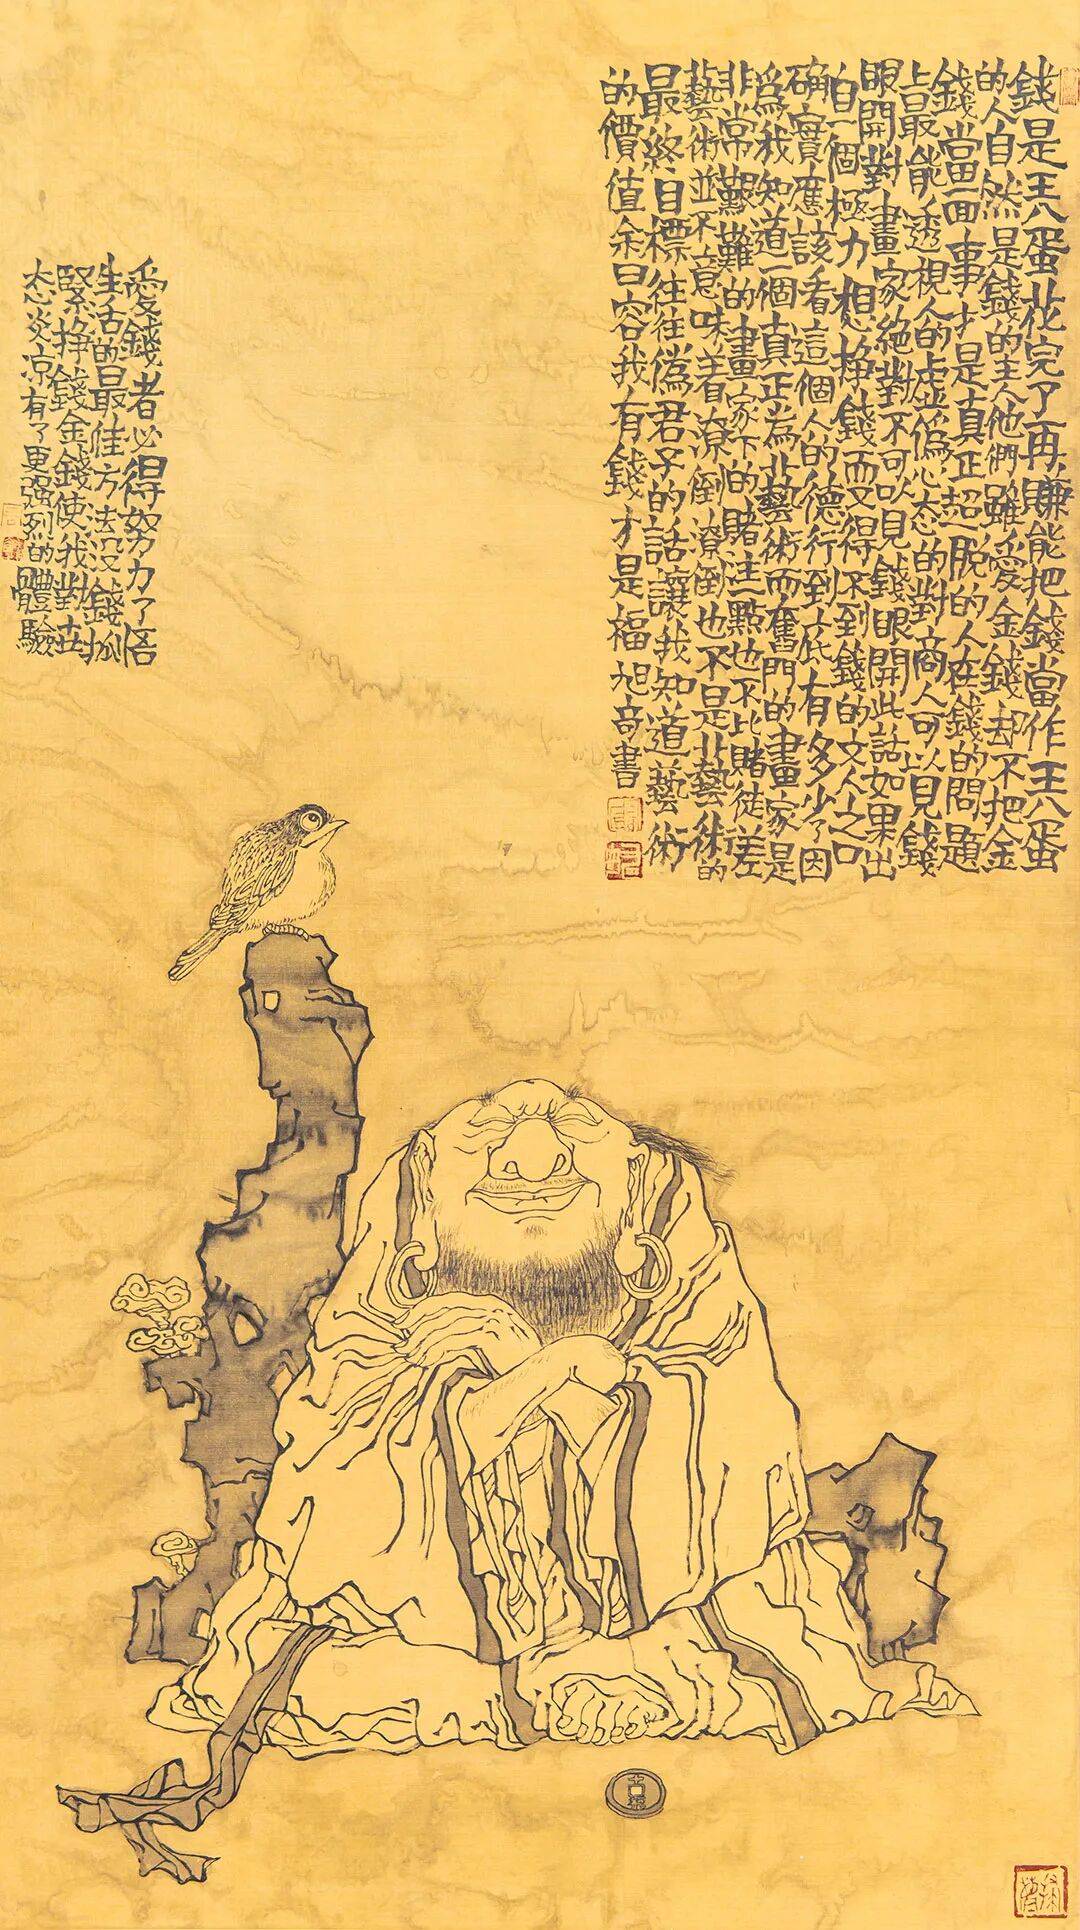 錢是王八蛋花完了再賺能把錢當作王八蛋
的人自然是錢的主人他們雖愛金錢却不把金
錢當回事才是真正超脱的人在錢的問題
上最能透視人的虛僞心态的對商人可以見錢
眼開對畫家絶對不可以見錢眼開此話如果出
自一個極力想掙錢而又得不到錢的文人之口
确實應該看這個人的德行到底有多少了因
爲我知道一個真正為藝術而奮鬥的畫家是
非常艱難的畫家下的賭注一點也不比賭徒差
藝術並不意味着潦倒潦倒也不是藝術的
最終目標往往僞君子的話讓我知道藝術
的價值余曰容我有錢才是福旭奇書
愛錢者必得努力了悟
生活的最佳方法没錢抓
緊掙錢金錢使我對世
态炎凉有了更强烈的體驗